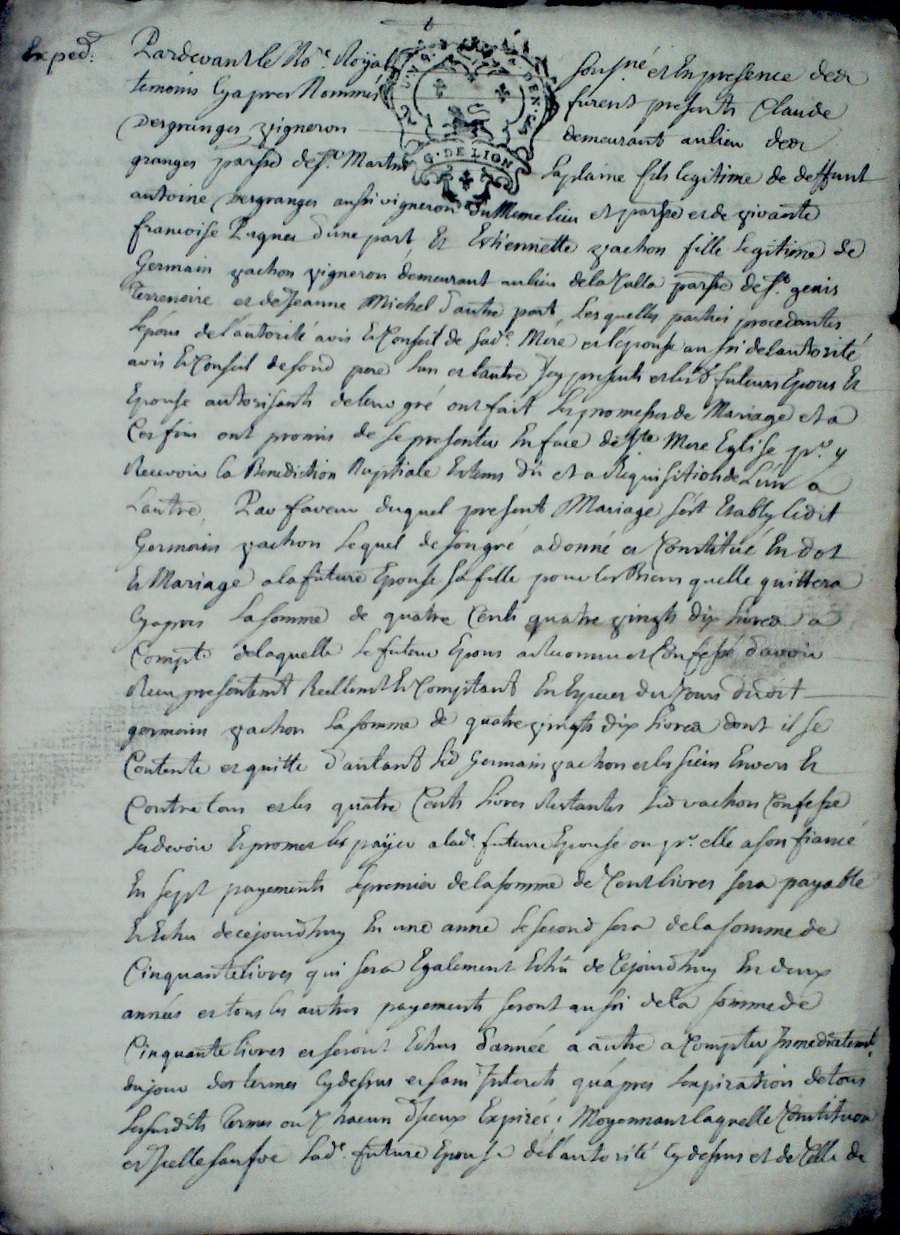 Exped.
Pardevant le No.re Royal soussigné et En presence des
temoins Cy apres Nommés furent presents Claude
Desgranges vigneron demeurant au lieu des
granges parsse de St. Martin la plaine fils legitime de deffunt
antoine Desgranges aussi vigneron du Meme lieu et parsse et de vivante
francoise Pagnes d'une part Et Estiennette vachon fille Legitime de
Germain vachon vigneron demeurant au lieu de la parsse de St. genis
Terrenoire et de Jeanne Michel d'autre part, Les quelles parties procedantes
L'epoux de l'autorité avis Et Conseil de sad.e Mere et l'epouse aussi de l'autorité
avis Et Conseil de sond pere L'un et l'autre Icy presents et lesd futeurs Epoux Et
Epouse autorisants de leur gré ont fait Les promesses de Mariage et a
Ces fins ont promis de se presenter En face de Ste Mere Eglise pr. y
Recevoir la Benediction Nuptiale En tems dû et a Requisition de L'un a
L'autre, Par faveur duquel present Mariage s'est Etably ledit
Germain vachon Lequel de son gré a donné et Constitué En dot
Et Mariage a la future Epouse sa fille pour les Biens quelle quittera
Cy apres La somme de quatre Cents quatre vingts dix Livres a
Compte de laquelle Le futeur Epoux a Reconnu et Confessé d'avoir
Receu presentemt Reellemt Et Comptant En Especes du Cours dudit
germain vachon La somme de quatre vingts dix Livres dont il se
Contente et quitte d'autant led Germain vachon et les siens Envers Et
Contre tous et les quatre Cents Livres Restantes Led vachon Confesse
Les devoir Et promet les payer a lad.e future Epouse ou pr. elle a son fiancé
En sept payements Le premier de la somme de Cent livres sera payable
Et Echu de cejourd'huy En une année Le second sera de la somme de
Cinquante livres qui sera Egalement Echû de Cejourd'huy En deux
années et tous les autres payements seront aussi de la somme de
Cinquante livres et seront Echus d'année a autre a Compter Immediatemt
du jour des termes Cy dessus et sans Interets qu'apres l'expiration de tous
Les susdits Termes ou Chacun d'Iceux Expirés; Moyennant laquelle Constitution
et Icelle sauve Lad.e future Epouse de l'autorité Cy dessus et de Celle de
G. DE LION